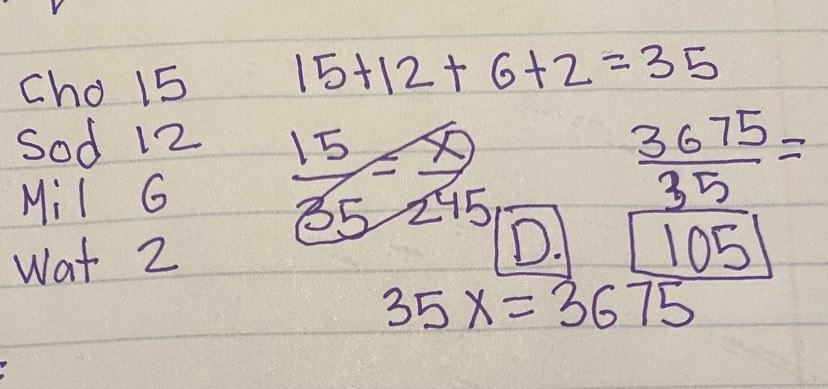 Cho 15 15+12+6+2=35
Sod 12
Mil 6
Wat 2
15/35 = x/245
35x=3675
3675/35 =
105
D.